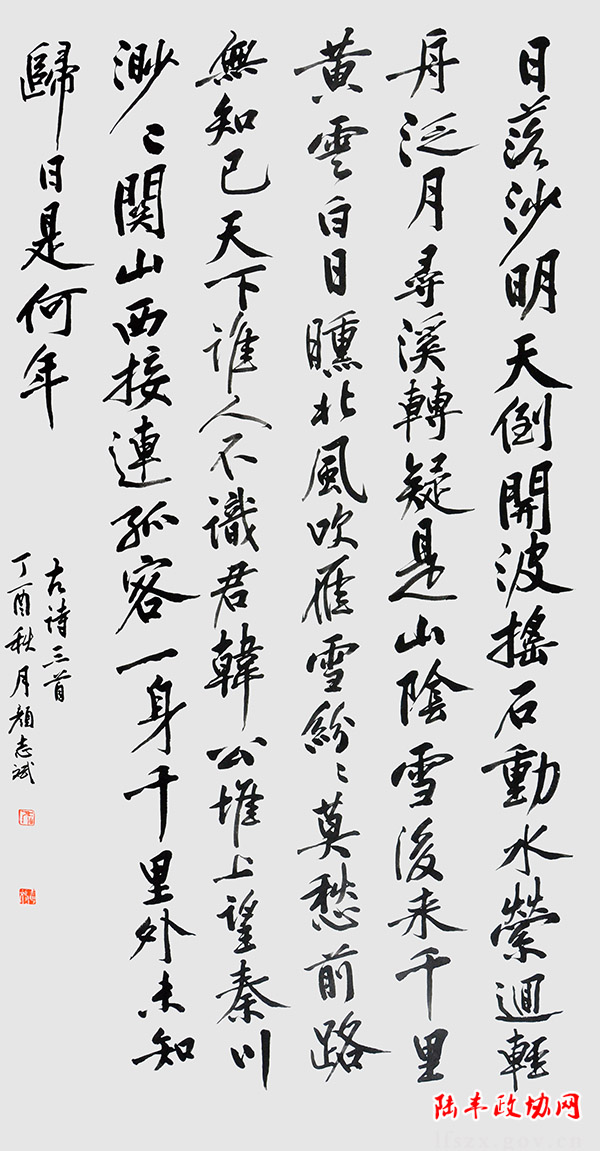 日落沙明天倒開波摇石動水縈迴輕
舟泛月尋溪轉疑是山陰雪後来千里
黄雲白日曛北風吹雁雪紛〻莫愁前路
無知已天下誰人不識君韓公堆上望秦川
渺〻関山西接連孤客一身千里外未知
歸日是何年
古诗三首
丁酉秋月顏志斌
陆丰政协网
lfszx.gov.cn